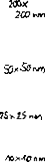 200x
200 nm
50x50 nm
25x25 nm
10x10 nm